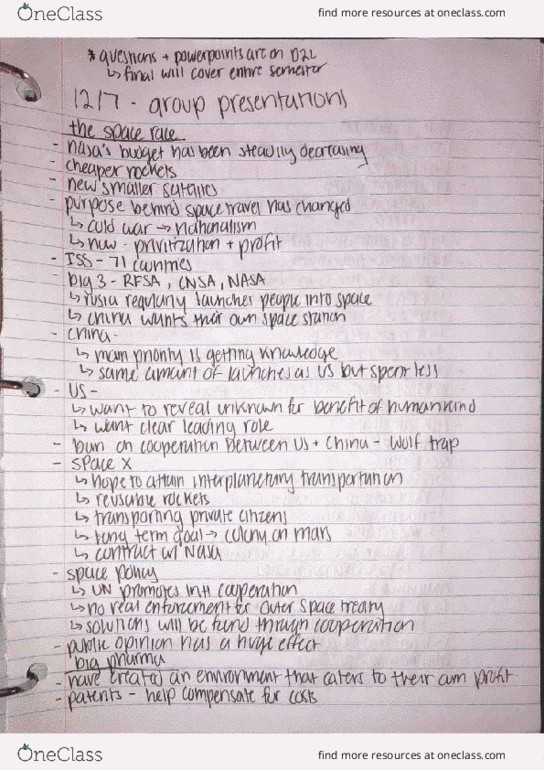 OneClass
find more resources at oneclass.com
* questions + powerpoints are on D2L
↳ final will cover entire semester
12/7 - group presentations
the space race
- nasa's budget has been steadily decreasing
- cheaper rockets
- new smaller satellites
- purpose behind space travel has changed
↳ cold war → nationalism
↳ now - privitization + profit
- ISS - 71 countries
- big 3 - RFSA, CNSA, NASA
↳ rusia regularly launches people into space
↳ china wants their own space station
- china -
↳ main priority is getting knowledge
↳ same amount of launches as US but spent less
- US -
↳ want to reveal unknown for benefit of humankind
↳ want clear leading role
- ban on cooperation between US + China - Wolf trap
- space X
↳ hope to attain interplanetary transportation
↳ reusable rockets
↳ transporting private citizens
↳ long term goal → colony on mars
↳ contract w/ Nasa
- space policy
↳ UN promotes intl cooperation
↳ no real enforcement for outer space treaty
↳ solutions will be fund through cooperation
- public opinion has a huge effect
big pharma
- have created an environment that caters to their own profit
- patents - help compensate for costs
OneClass
find more resources at oneclass.com